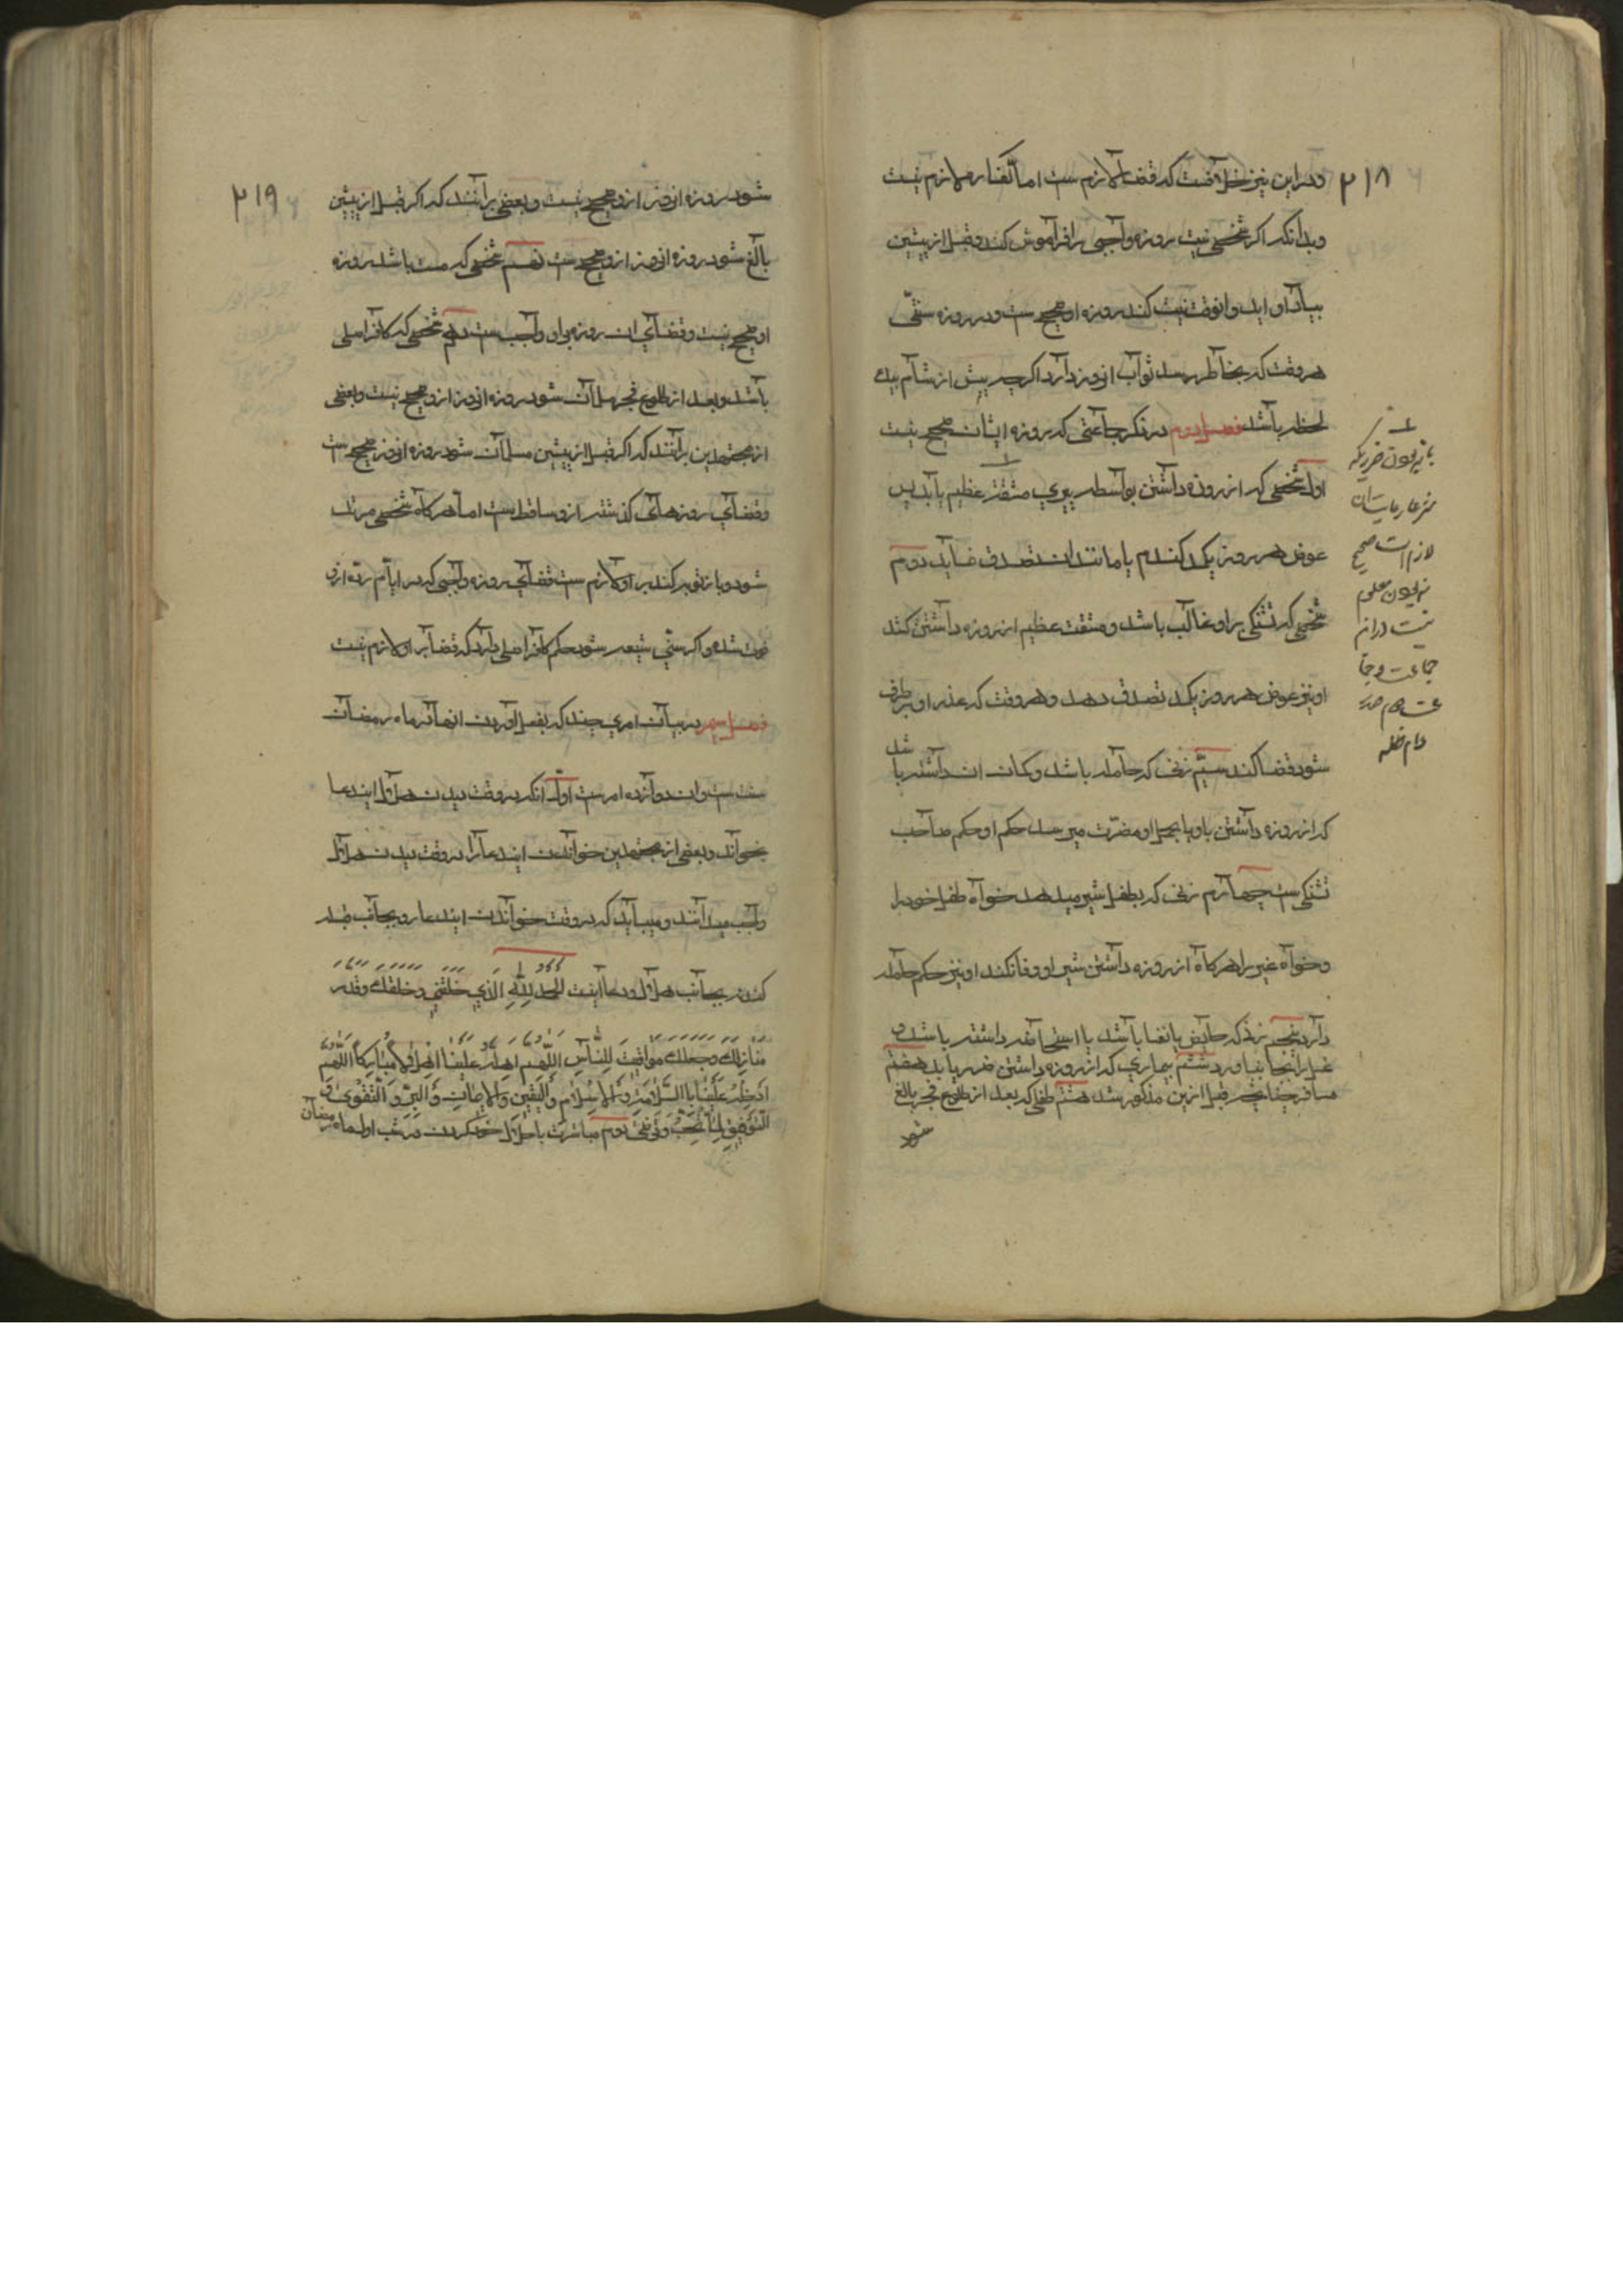 ۲۱۸
ودراین نیز خلافست که قضا لازم ست اما کفاره لازم نیست
وبدانکه اکر شخصی نیت روزه واجبی را فراموش کند وقبل از پیشین
بیاد او اید وانوقت نیت کند روزه او صحیح ست ودر روزه سنتی
هروقت که بخاطر رسد ثواب انروز دارد اکرچه پیش از شام بیک
لحظه باشد فصل دوم در ذکر جماعتی که روزه ایشان صحیح نیست
اول شخصی که از روزه داشتن بواسطه پیری مشقت عظیم یابد پس
عوض هر روز یکمد کندم یا مانند ان تصدق نماید دوم
شخصی که تشنکی براو غالب باشد ومشقت عظیم از روزه داشتن کشد
او نیز عوض هر روز یکمد تصدق دهد وهروقت که عذر او برطرف
شود قضا کند سیم زنی که حامله باشد وکمان ان داشته باشد
که از روزه داشتن باو یا بحمل او مضرت میرسد حکم او حکم صاحب
تشنکی ست چهارم زنی که بطفل شیر میدهد خواه طفل خود را
وخواه غیر را هرکاه از روزه داشتن شیر او وفا نکند او نیز حکم حامله
دارد پنجم زنی که حایض یا نفسا باشد یا استحاضه داشته باشد و
غسل را بجا نیاورد ششم بیماری که از روزه داشتن ضرر یابد هفتم
مسافر چنانچه قبل ازین مذکور شد هشتم طفلی که بعد از طلوع فجر بالغ
شود
لازم است صحیح
نیست در
دام ظله
۲۱۹
شود روزه انروز ازو صحیح نیست وبعضی برانند که اکر قبل از پیشین
بالغ شود روزه انروز ازو صحیح ست نهم شخصی که مست باشد روزه
او صحیح نیست وقضای ان روزه براو واجب ست دهم شخصی که کافر اصلی
باشد وبعد از طلوع فجر مسلمان شود روزه انروز ازو صحیح نیست وبعضی
از مجتهدین برانند که اکر قبل از پیشین مسلمان شود روزه انروز صحیح ست
وقضای روزهای کذشته ازو ساقط ست اما هرکاه شخصی مرتد
شود وباز توبه کند براو لازم ست قضای روزه واجبی که در ایام رده ازو
فوت شده واکر سنی شیعه شود حکم کافر اصلی دارد که قضا براو لازم نیست
فصل سیم در بیان امری چند که بفعل اوردن انها در ماه رمضان
سنت ست وان دوازده امرست اول انکه در وقت دیدن هلال ایندعا
بخواند وبعضی از مجتهدین خواندن ایندعا را در وقت دیدن هلال
واجب میدانند ومیباید که در وقت خواندن ایندعا رو بجانب قبله
کند نه بجانب هلال ودعا اینست الحمد لله الذی خلقنی وخلقک وقدر
منازلک وجعلک مواقیت للناس اللهم اهله علینا اهلالا مبارکا اللهم
ادخله علینا بالسلامة والاسلام والیقین والایمان والبر والتقوی و
التوفیق لما تحب وترضی دوم مباشرت با حلال خود کردن در شب اول ماه رمضان